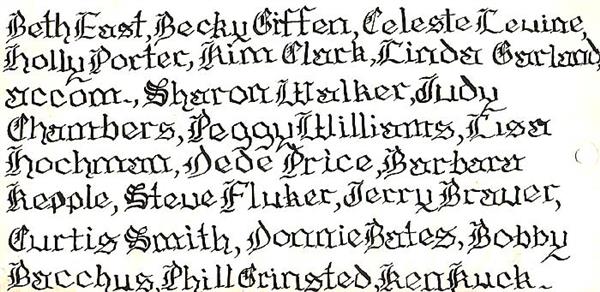 Beth East, Becky Giffen, Celeste Levine,
Holly Porter, Kim Clark, Linda Garland,
accom., Sharon Walker, Judy
Chambers, Peggy Williams, Lisa
Hochman, Dede Price, Barbara
Kepple, Steve Fluker, Jerry Braver,
Curtis Smith, Donnie Bates, Bobby
Bacchus, Phill Grinsted, Ken Kuck.